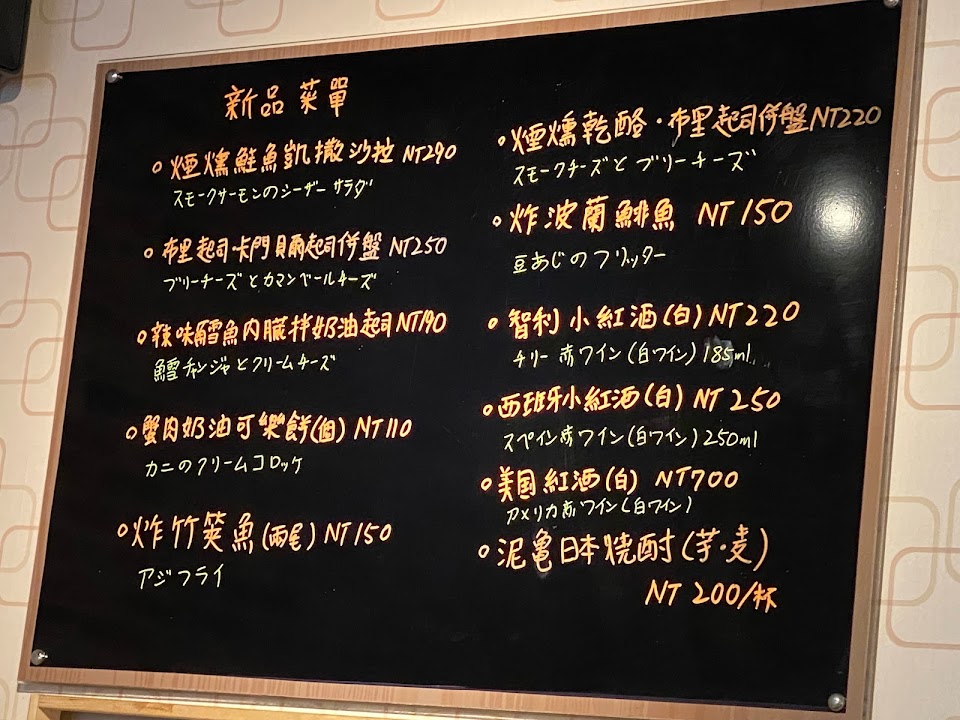 新品菜單
煙燻鮭魚凱撒沙拉 NT290
スモークサーモンのシーザーサラダ
布里起司卡門貝爾起司併盤 NT250
ブリーチーズとカマンベールチーズ
辣味鱈魚內臟拌奶油起司 NT190
鱈チャンジャとクリームチーズ
蟹肉奶油可樂餅(個) NT110
カニのクリームコロッケ
炸竹筴魚(兩尾) NT150
アジフライ
煙燻乾酪・布里起司併盤 NT220
スモークチーズとブリーチーズ
炸波蘭鯡魚 NT150
豆あじのフリッター
智利小紅酒(白) NT220
チリー赤ワイン(白ワイン) 185ml
西班牙小紅酒(白) NT 250
スペイン赤ワイン(白ワイン) 250ml
美国紅酒(白) NT700
アメリカ赤ワイン(白ワイン)
泥亀日本焼酎(芋・麦)
NT 200/杯